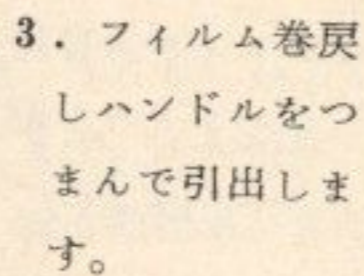 3．フィルム巻戻
しハンドルをつ
まんで引出しま
す。